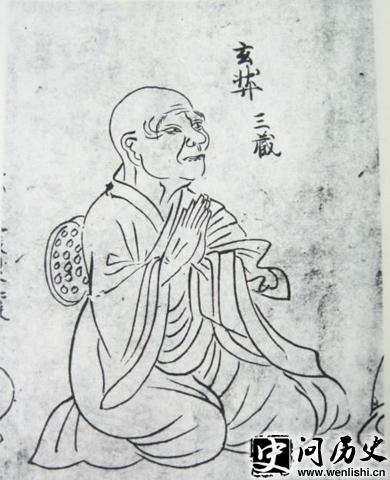 玄奘
三藏
史问历史
www.wenlishi.cn